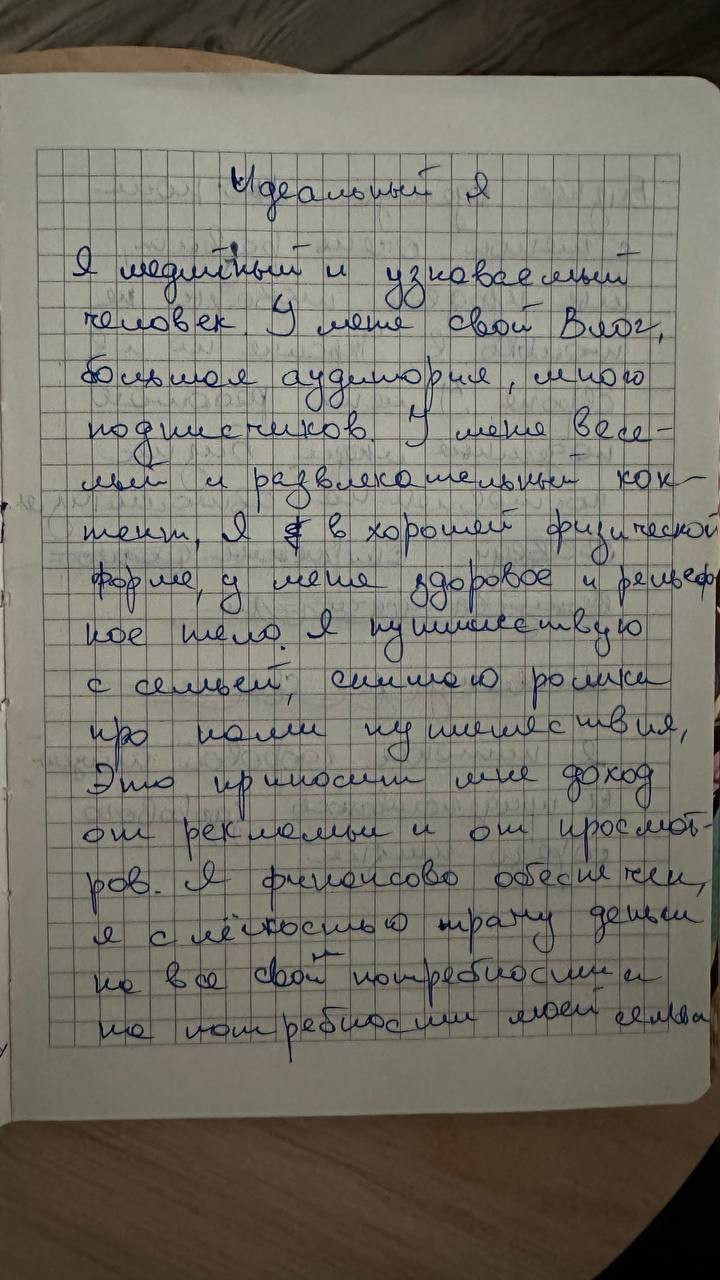 Идеальный я
Я медийный и узнаваемый
человек. У меня свой Влог,
большая аудитория, много
подписчиков. У меня весе-
лый и развлекательный кон-
тент, Я в хорошей физической
форме, у меня здоровое и рельеф
ное тело. Я путишествую
с семьей, снимаю ролики
про наши путишествия,
Это приносит мне доход
от рекламы и от просмот-
ров. Я финансово обеспечен,
я с лёгкостью трачу деньги
на все свои потребности и
на потребности моей семьи